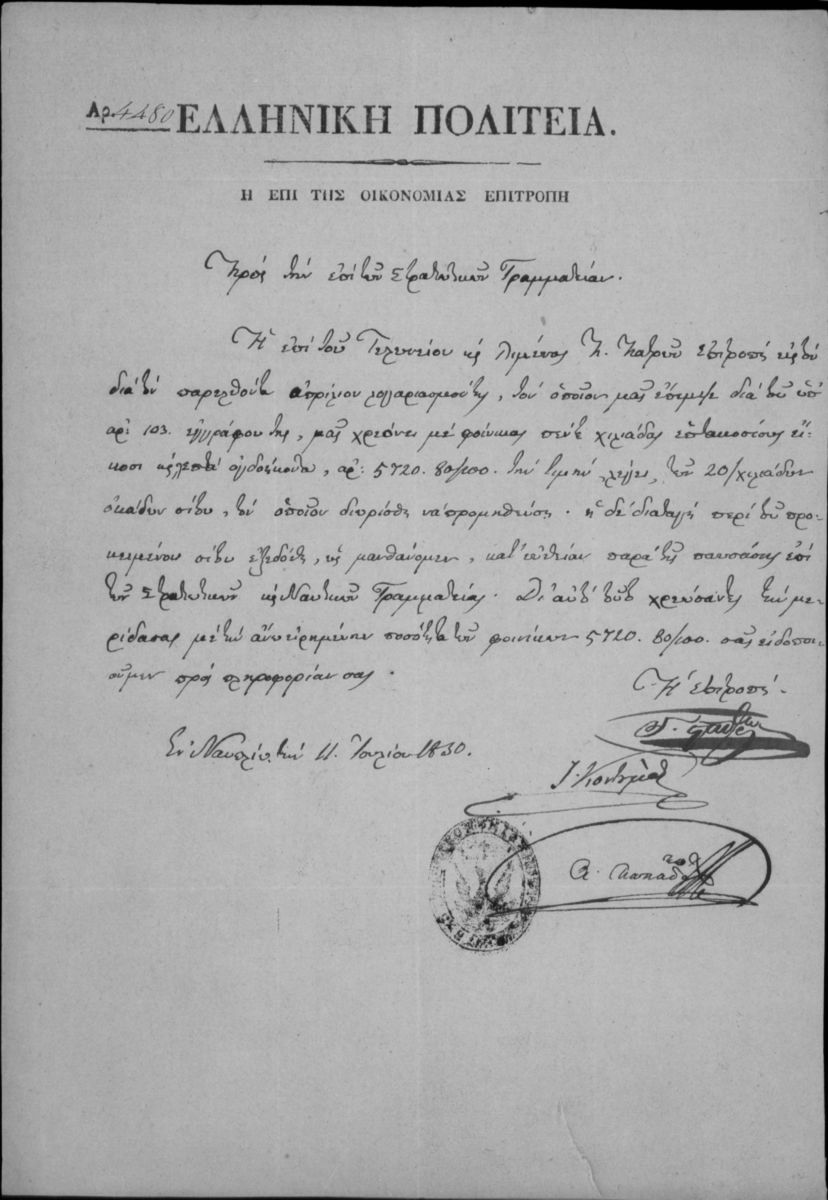 Αρ. 4480 ΕΛΛΗΝΙΚΗ ΠΟΛΙΤΕΙΑ.
Η ΕΠΙ ΤΗΣ ΟΙΚΟΝΟΜΙΑΣ ΕΠΙΤΡΟΠΗ
Πρὸς τὴν ἐπὶ τῶν Στρατιωτικῶν Γραμματείαν.
Ἡ ἐπὶ τοῦ Τελωνείου κ λιμένος Π. Πατρῶν Ἐπιτροπὴ εἰς τὸν
διὰ τὸν παρελθόντα ἀπρίλιον λογαριασμόν της, τὸν ὁποῖον μᾶς ἔπεμψε διὰ τοῦ ὑπ'
ἀρ: 103. ἐγγράφου της, μᾶς χρεόνει μὲ φοίνικας πέντε χιλιάδας ἑπτακοσίους εἴ-
κοσι κ λεπτὰ ὀγδοήκοντα, ἀρ: 5720. 80/100. τὴν τιμὴν, λέγει, τῶν 20/χιλιάδων
ὀκάδων σίτου, τὸν ὁποῖον διωρίσθη νὰ προμηθεύσῃ. ἡ δὲ διαταγὴ περὶ τοῦ προ-
κειμένου σίτου ἐξεδόθη, ὡς μανθάνομεν, κατ' εὐθεῖαν παρὰ τῆς παυσάσης ἐπὶ
τῶν Στρατιωτικῶν κ Ναυτικῶν Γραμματείας. Δι' αὐτὸ τοῦτο χρεώσαντες τὴν με-
ρίδα σας μὲ τὴν ἄνω εἰρημένην ποσότητα τῶν φοινίκων 5720. 80/100. σᾶς εἰδοποι-
οῦμεν πρὸς πληροφορίαν σας.
Ἡ Ἐπιτροπή.
Ἐν Ναυπλίῳ τὴν 11. Ἰουλίου 1830.
Ι. Κοντουμᾶς
Α. Παπαδό